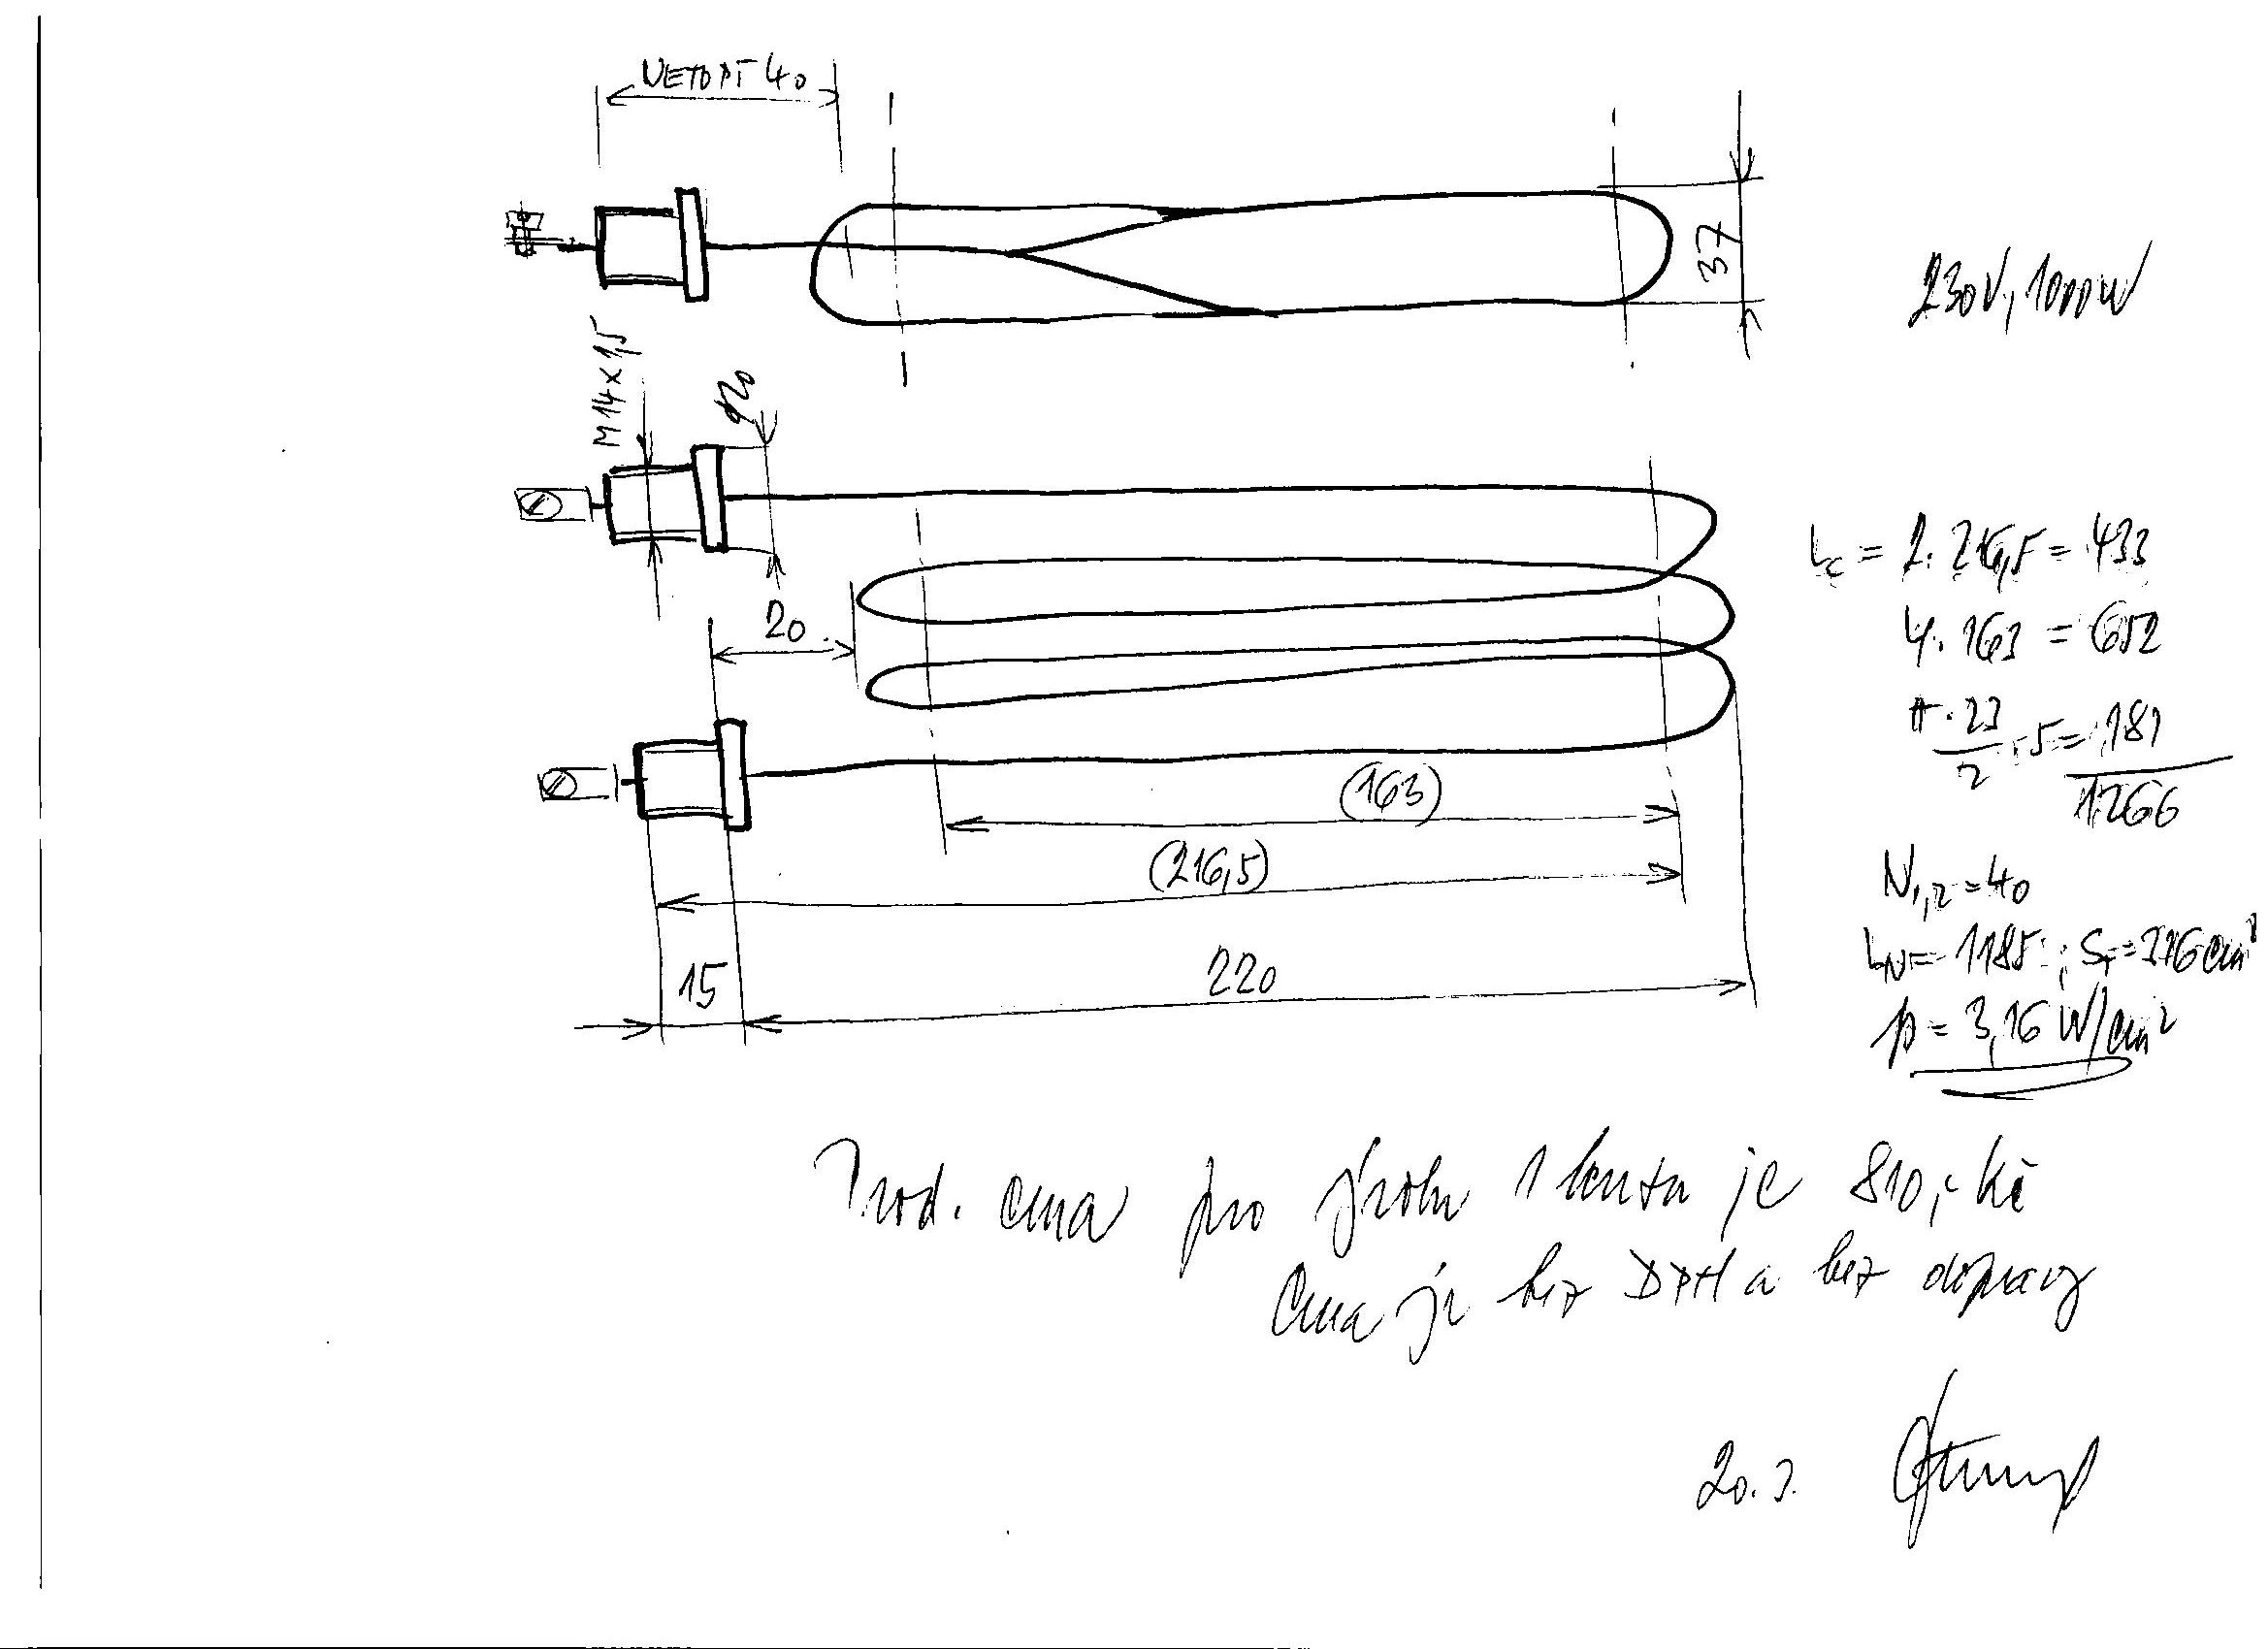 NETOPÍ 40
37
230V, 1000W
M14×1,5
ø20
Lc = 2·216,5 = 433
20
4·163 = 652
π·23/2 · 5 = 181
1266
(163)
(216,5)
N1,2 = 40
LN = 1185 ; S = 316 cm²
15
220
p = 3,16 W/cm²
Prod. cena pro výrobu 1 kusu je 810,- Kč
Cena je bez DPH a bez dopravy
20.3.